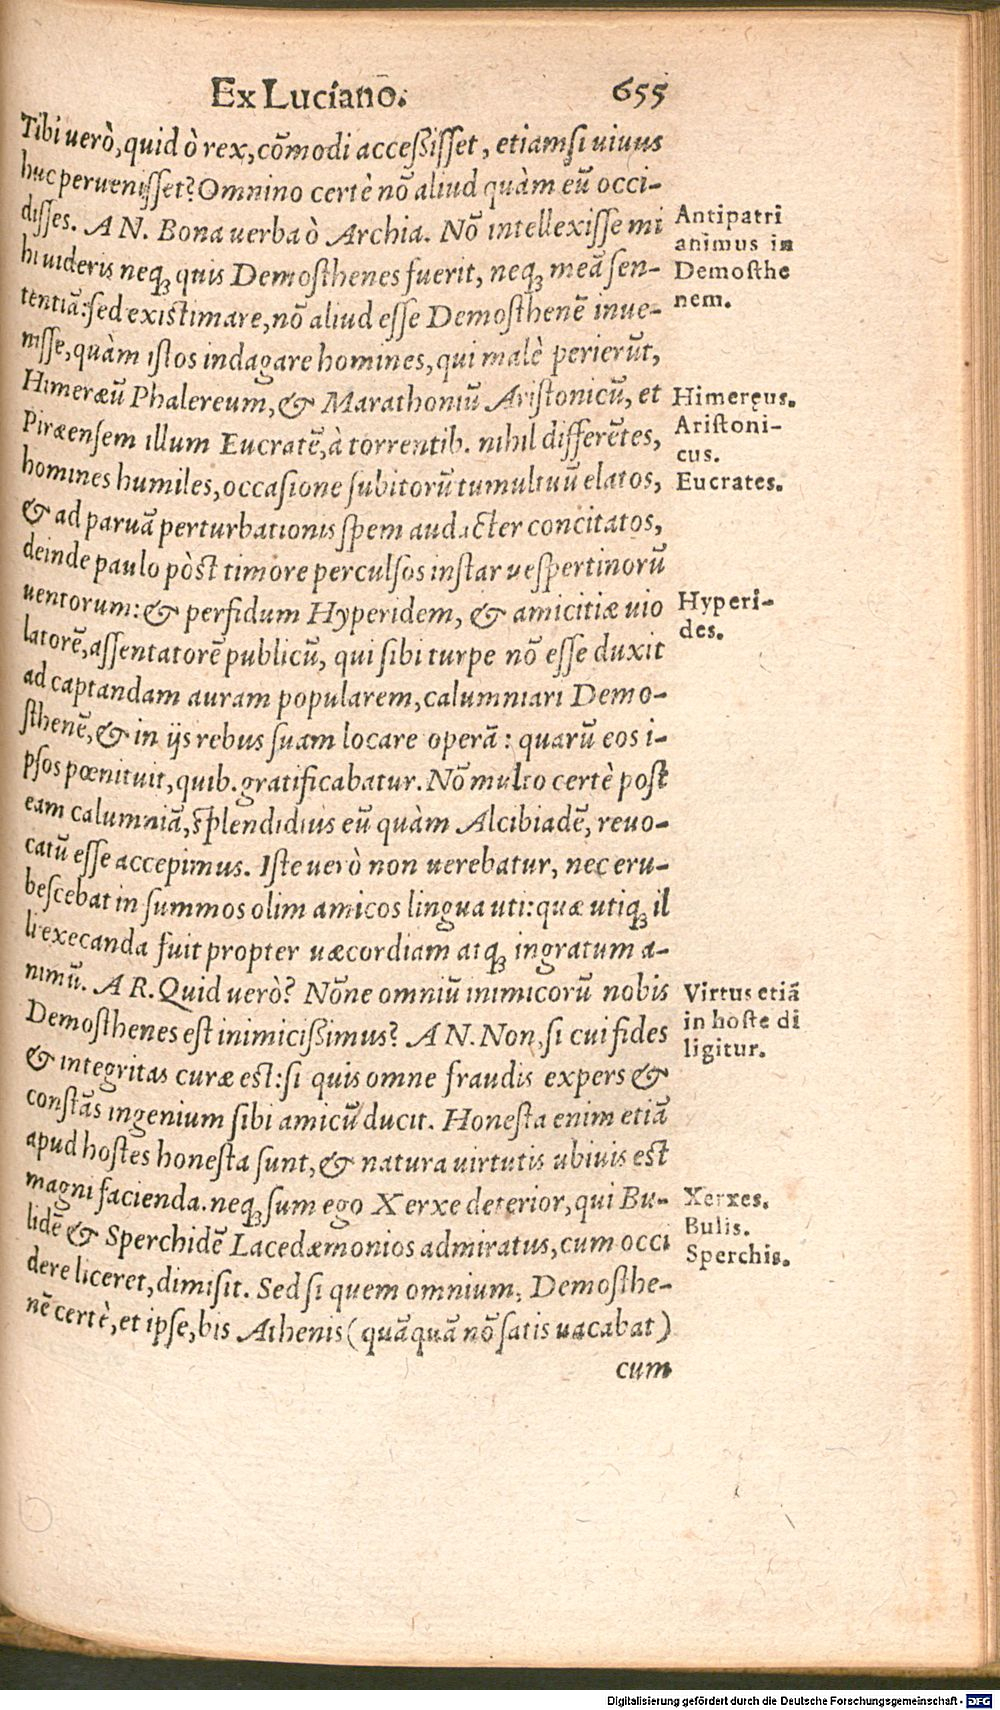 Ex Luciano.
655
Tibi uerò, quid ò rex, cōmodi acceßisset, etiamsi uiuus
huc peruenisset? Omnino certè nō aliud quàm eū occi-
disses. AN. Bona uerba ò Archia. Nō intellexisse mi
hi uideris neqꝫ quis Demosthenes fuerit, neqꝫ meā sen-
tentiā: sed existimare, nō aliud esse Demosthenē inue-
nisse, quàm istos indagare homines, qui malè perierūt,
Himeræū Phalereum, & Marathoniū Aristonicū, et
Piræensem illum Eucratē, à torrentib. nihil differētes,
homines humiles, occasione subitorū tumultuū elatos,
& ad paruā perturbationis spem audacter concitatos,
deinde paulo pòst timore perculsos instar uespertinorū
uentorum: & perfidum Hyperidem, & amicitiæ uio
latorē, assentatorē publicū, qui sibi turpe nō esse duxit
ad captandam auram popularem, calumniari Demo-
sthenē, & in ijs rebus suam locare operā: quarū eos i-
psos pœnituit, quib. gratificabatur. Nō multo certè post
eam calumniā, splendidius eū quàm Alcibiadē, reuo-
catū esse accepimus. Iste uerò non uerebatur, nec eru-
bescebat in summos olim amicos lingua uti: quæ utiqꝫ il
li execanda fuit propter uæcordiam atqꝫ ingratum a-
nimū. AR. Quid uerò? Nōne omniū inimicorū nobis
Demosthenes est inimicißimus? AN. Non, si cui fides
& integritas curæ est: si quis omne fraudis expers &
constās ingenium sibi amicū ducit. Honesta enim etiā
apud hostes honesta sunt, & natura uirtutis ubiuis est
magni facienda. neqꝫ sum ego Xerxe deterior, qui Bu-
lidē & Sperchidē Lacedæmonios admiratus, cum occi
dere liceret, dimisit. Sed si quem omnium, Demosthe-
nē certè, et ipse, bis Athenis (quāquā nō satis uacabat)
cum
Antipatri
animus in
Demosthe
nem.
Himereus.
Aristoni-
cus.
Eucrates.
Hyperi-
des.
Virtus etiā
in hoste di
ligitur.
Xerxes.
Bulis.
Sperchis.
Digitalisierung gefördert durch die Deutsche Forschungsgemeinschaft - DFG